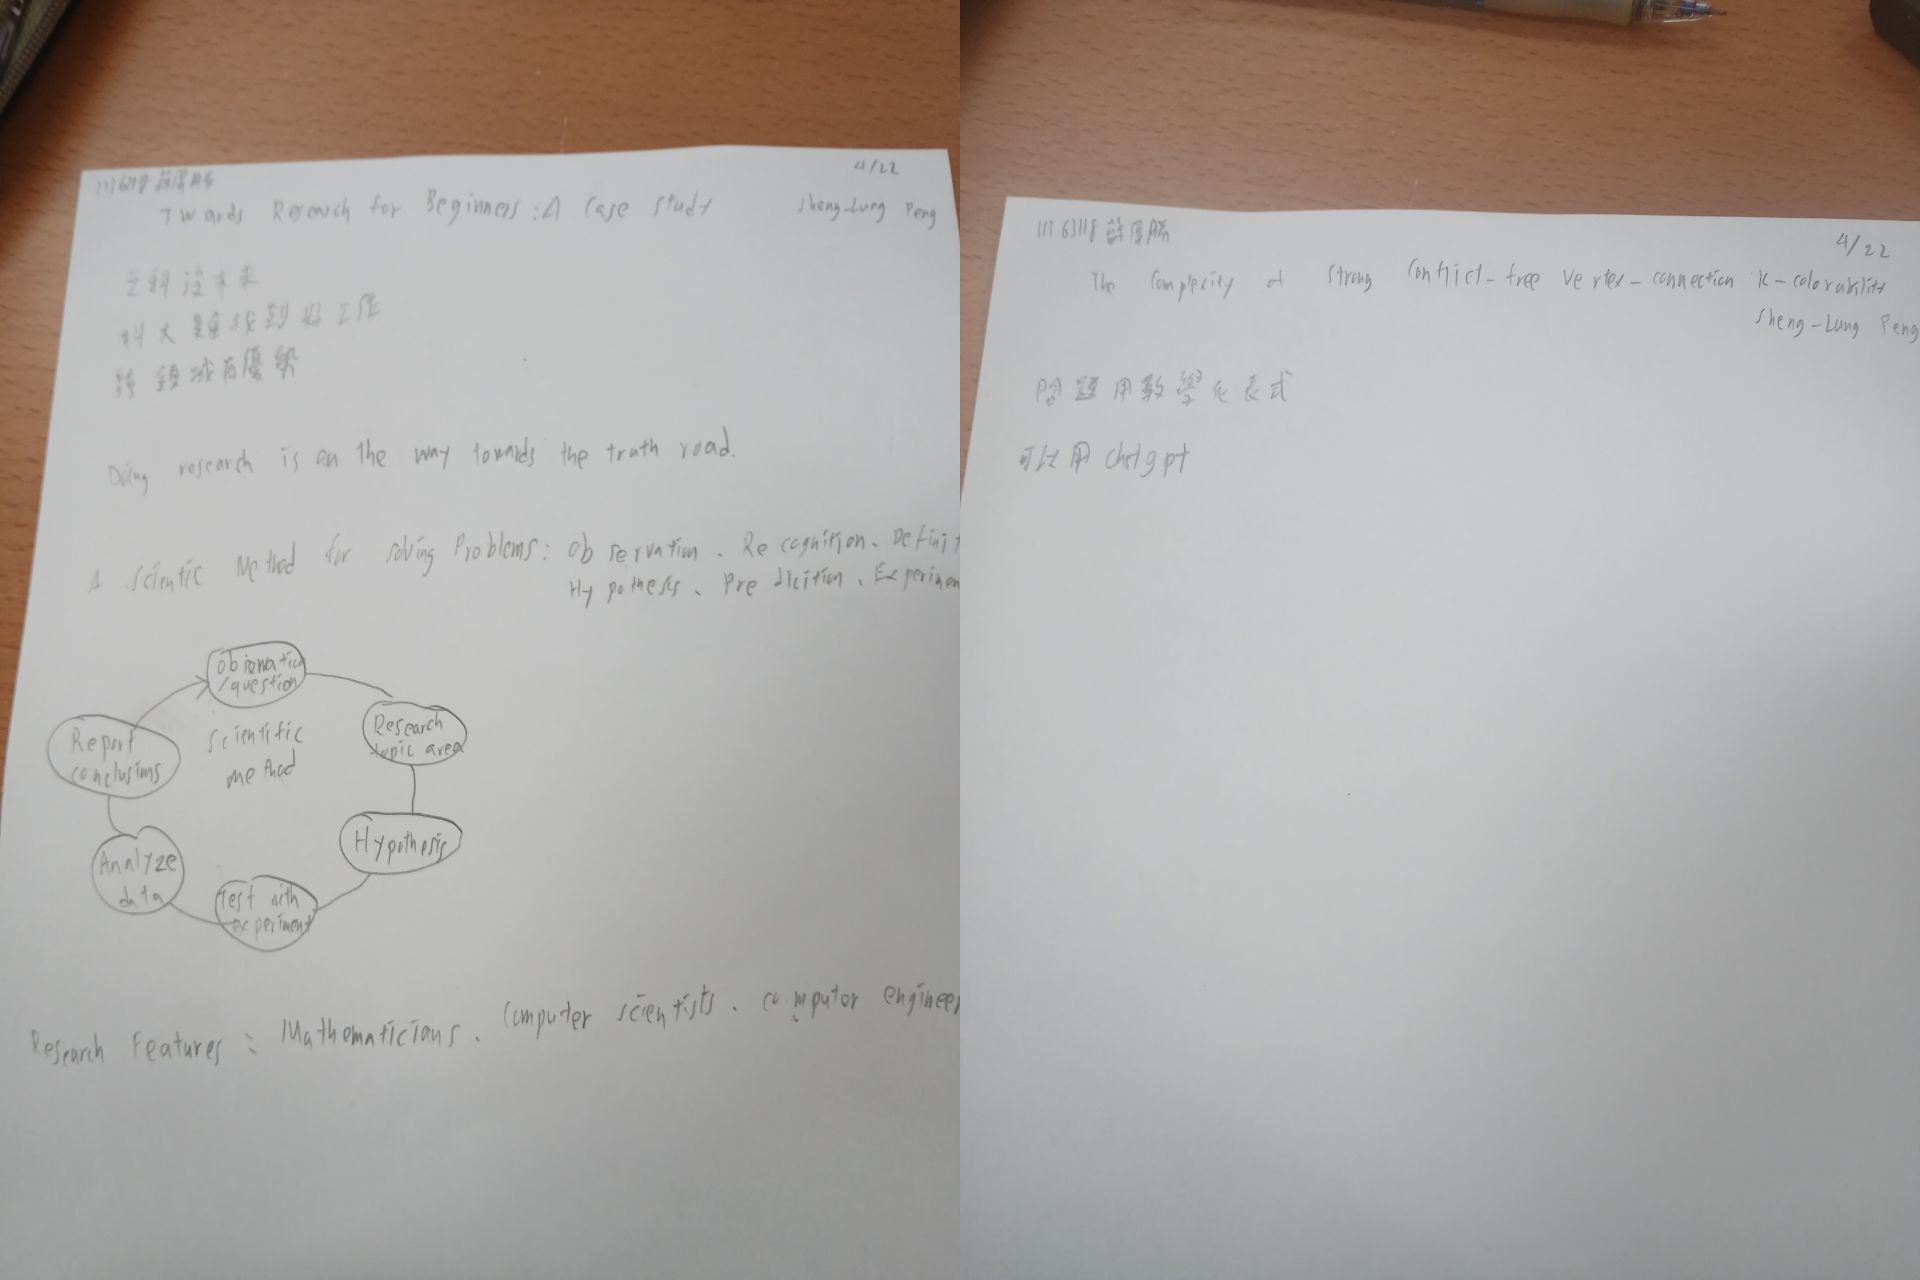 4/22
Twards Research for Beginners: A Case Study Sheng-Lung Peng
文科沒未來
科大難找到好工作
跨領域有優勢
Doing research is on the way towards the truth road.
A Scientic Method for solving Problems: Observation、Recognition、Definit
Hypothesis、Predicition、Experimen
Obsernation
/question
Research
topic area
Hypothesis
Test with
experiment
Analyze
data
Report
conclusions
scientific
method
Research Features: Mathematicians、Computer scientists、computer engineer
11363118
4/22
The Complexity of Strong Conflict-free Vertex-connection k-colorability
Sheng-Lung Peng
問題用數學化表式
可以用 chatgpt